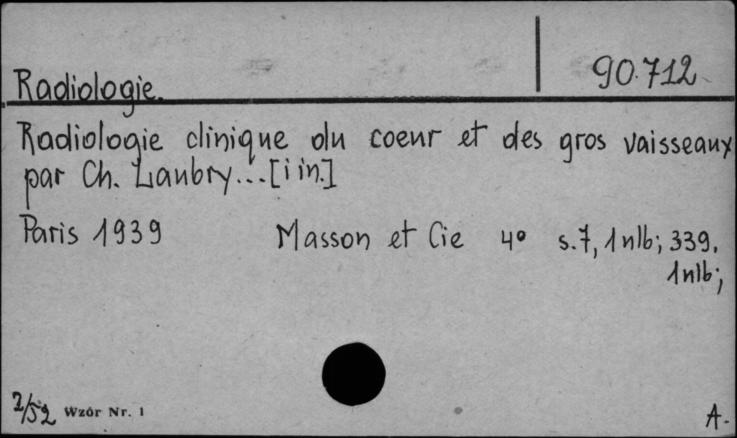 90.712
Radiologie.
Radiologie clinique du coeur et des gros vaisseaux
par Ch. Laubry...[i in.]
Paris 1939 Masson et Cie 4° s.7, 1 nlb; 339,
1nlb;
2/52 Wzór Nr. 1 A.